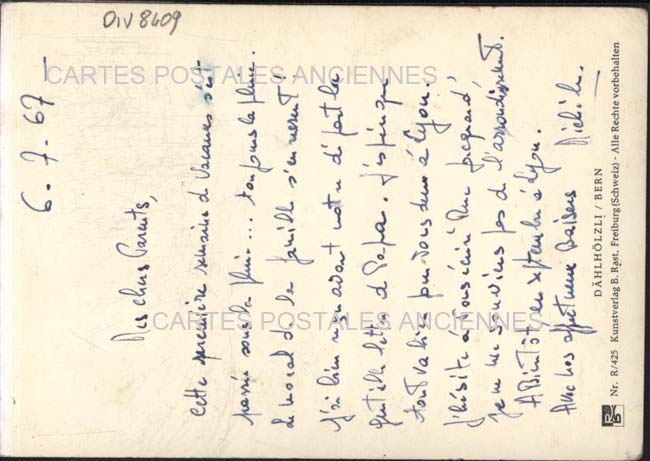 DIV8409
CARTES POSTALES ANCIENNES
CARTES POSTALES ANCIENNES
6.7.67
Mes chers Parents,
Cette première semaine de vacances s'est
passée sous la pluie... toujours la pluie..
le moral de la famille s'en ressent!
J'ai bien reçu avant notre départ la
gentille lettre de Papa. J'espère que
tout va bien pour vous deux à Lyon.
J'hésite à vous écrire Rue
je ne me souviens pas de l'arrondissement.
A Bientôt en septembre à Lyon.
Avec nos affectueux baisers
DÄHLHÖLZLI / BERN
Nr. R/425 Kunstverlag B. Rast, Freiburg (Schweiz) - Alle Rechte vorbehalten